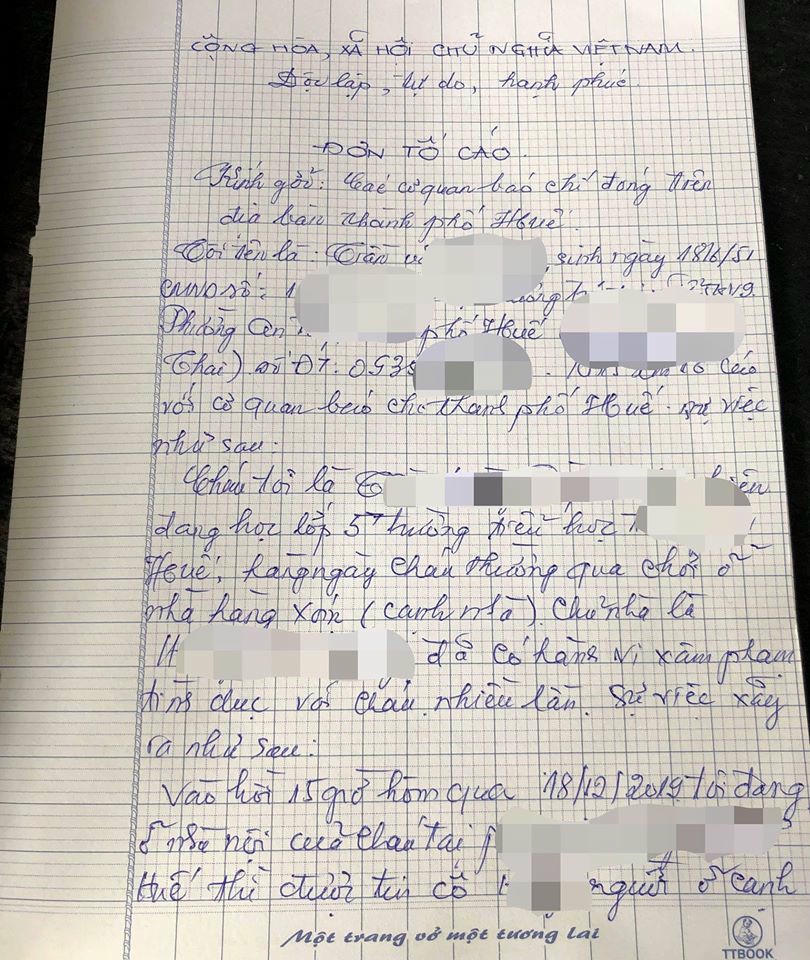 CỘNG HÒA, XÃ HỘI CHỦ NGHĨA VIỆT NAM.
Độc lập, tự do, hạnh phúc.
ĐƠN TỐ CÁO.
Kính gởi: Các cơ quan báo chí đóng trên
địa bàn thành phố Huế.
Tôi tên là: Trần , sinh ngày 18/6/51
CMND số: 1
Phường An phố Huế
Thai) số ĐT: 0935 tố cáo
với cơ quan báo chí thành phố Huế. sự việc
như sau:
Cháu tôi là
đang học lớp 5 trường tiểu học
Huế, hàng ngày cháu thường qua chơi ở
nhà hàng xóm (cạnh nhà). Chủ nhà là
H đã có hành vi xâm phạm
tình dục với cháu nhiều lần. Sự việc xảy
ra như sau:
Vào hồi 15 giờ hôm qua 18/12/2019 tôi đang
ở nhà nội của cháu tại
Huế thì được tin cô người ở cạnh
Một trang vở một tương lai
TTBOOK